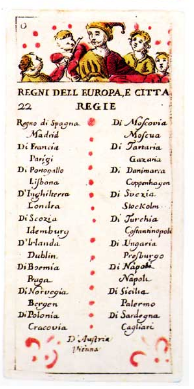 0
REGNI DELL EUROPA, E CITTA
22 REGIE
Regno di Spagna
Madrid
Di Francia
Parigi
Di Portogallo
Lisbona
D'Inghilterra
Londra
Di Scozia
Idemburg
D'Irlanda
Dublin
Di Boemia
Praga
Di Norvegia
Bergen
Di Polonia
Cracovia
Di Moscovia
Moscua
Di Tartaria
Di Danimarca
Coppenhagen
Di Svezia
StocKolm
Di Turchia
Costantinopoli
Di Ungaria
Presburgo
Di Napoli
Napoli
Di Sicilia
Palermo
Di Sardegna
Cagliari
D'Austria
Vienna